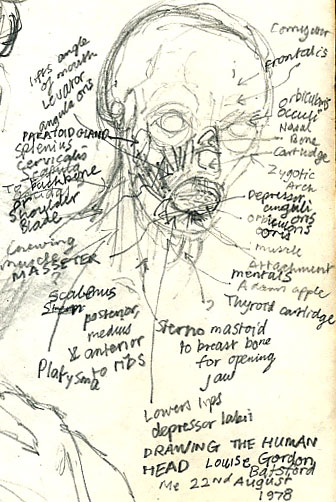 Corrugator
frontalis
lifts angle
of mouth
Levator
angula oris
orbicularis
Occuli
Nasal
Bone
Cartridge
PARATOID GLAND
splenius
Cervicalis
To
backbone
Shoulder
Blade
Zygotic
Arch
Depressor
anguli
oris
orbicularis
oris
muscle
Attachment
mentalis
Adams apple
Thyroid cartridge
Chewing
muscle
MASSETER
Scalenus
posterior,
medius
& anterior
to ribs
Platysma
Sterno mastoid
to breast bone
for opening
jaw
Lowers lips
depressor labii
DRAWING THE HUMAN
HEAD Louise Gordon
Batsford
Me 22nd August
1978